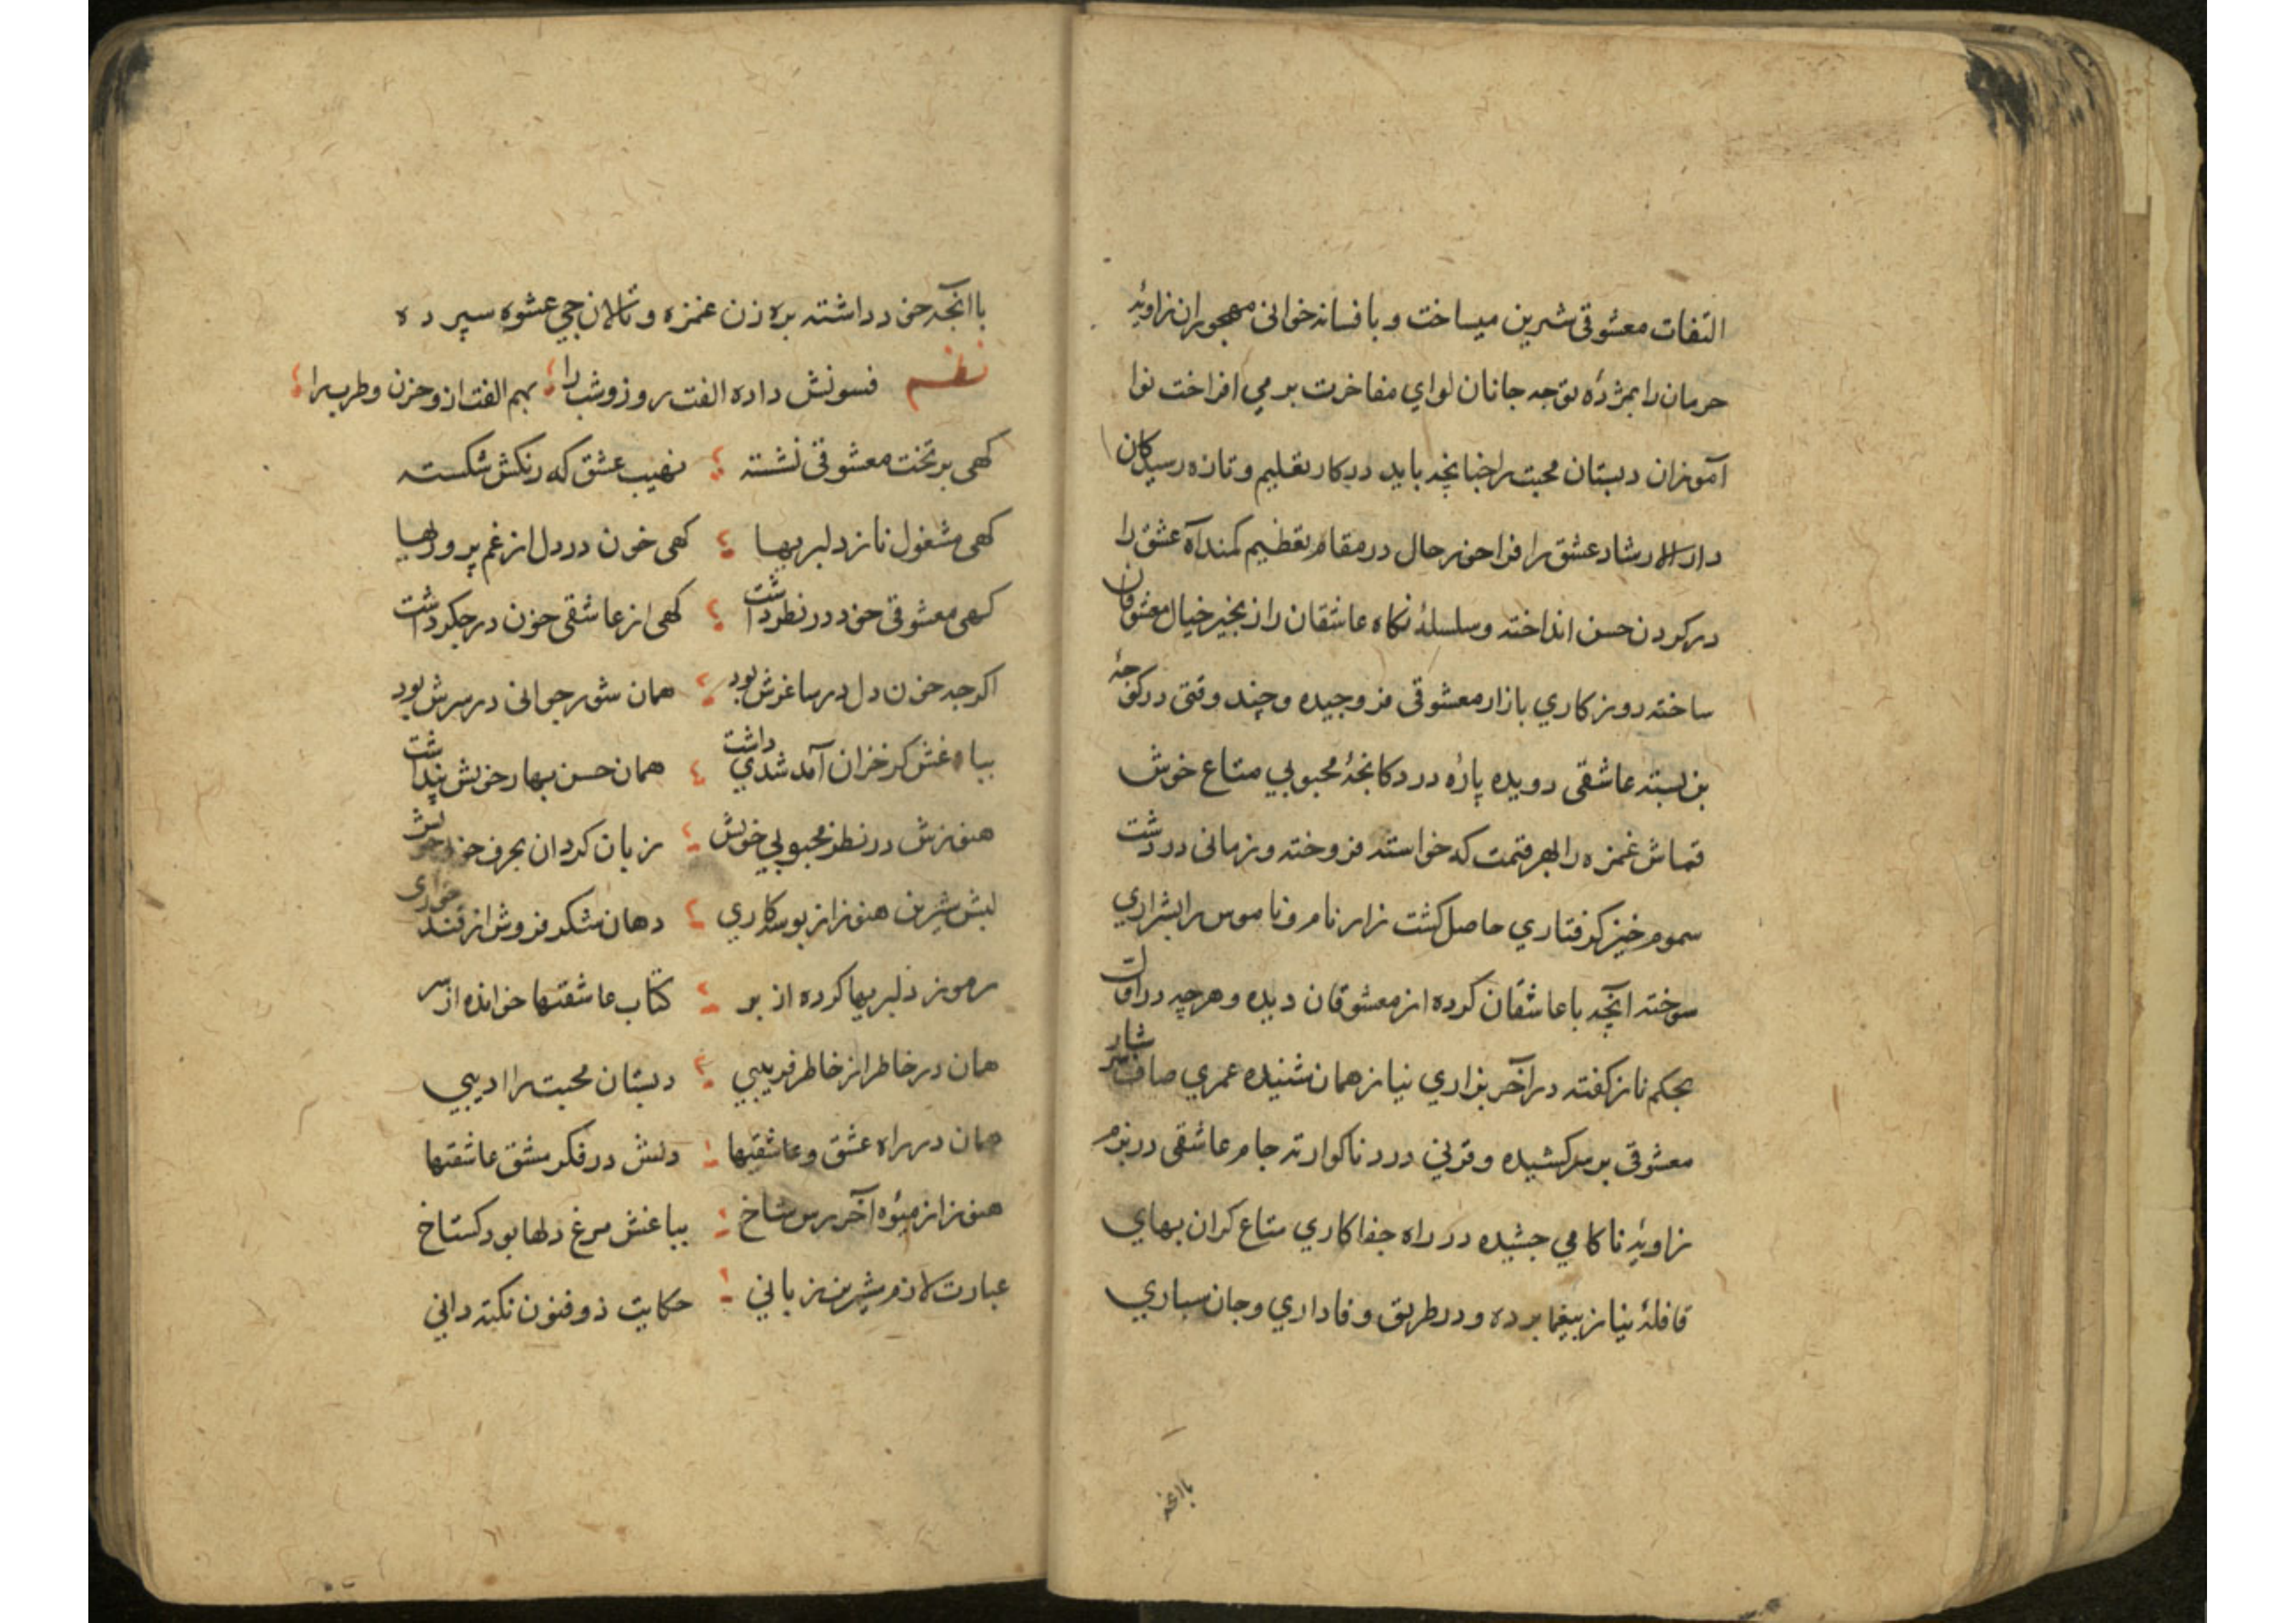 التفات معشوقی شیرین میساخت و بافسانه خوانی مهجوران زاویهٔ
حرمان را بمژدهٔ توجه جانان لوای مفاخرت بر می افراخت نوا
آموزان دبستان محبت را چنانچه باید درکار تعلیم و تازه رسیدکان
دار الارشاد عشق را فراخور حال در مقام تعظیم کمند آه عشق را
در کردن حسن انداخته و سلسلهٔ نکاه عاشقان را زنجیر خیال معشوقان
ساخته روزکاری بازار معشوقی فروچیده و چند وقتی در کوچهٔ
عاشقی دویده پارهٔ در دکانچهٔ محبوبی متاع خوش
قماش غمزه را بهر قیمت که خواسته فروخته و زمانی در دشت
سموم خیز کرفتاری حاصل کشت زار نام و ناموس را بشراری
سوخته آنچه با عاشقان کرده از معشوقان دیده و هرچه در اول
بحکم ناز کفته در آخر بزاری نیاز همان شنیده عمری صاف سرشار
معشوقی بر سر کشیده و قرنی درد ناکوارنه جام عاشقی در بزم
زاویهٔ ناکامی چشیده در راه جفاکاری متاع کران بهای
قافلهٔ نیاز بیغما برده و در طریق وفاداری و جان سپاری
باانچه
با آنچه خود داشته بره زن غمزه و تالانچی عشوه سپرده
نظم فسونش داده الفت روز و شب را بهم الفت از و حزن و طرب را
کهی بر تخت معشوقی نشسته نهیب عشق که رنکش شکسته
کهی مشغول ناز دلبریها کهی خون در دل از غم پرورلها
کهی معشوقی خود در نظر داشت کهی از عاشقی خون در جکر داشت
اکرچه خون دل در ساغرش بود همان شور جوانی در سرش بود
بباغش کر خزان آمد شدی داشت همان حسن بهار خویش پنداشت
هنوزش در نظر محبوبی خویش زبان کردان بحرف خوبی خویش
لبش شیرین هنوز از بوسه کاری دهان شکر فروش از قند خواری
رموز دلبریها کرده از بر کتاب عاشقیها خوانده از سر
همان در خاطر از خاطر فریبی دبستان محبت را ادیبی
همان در راه عشق و عاشقیها دلش در فکر مشق عاشقیها
هنوز از میوهٔ آخر رس شاخ بباغش مرغ دلها بود کستاخ
عبارت لازم شیرین زبانی حکایت ذوفنون نکته دانی